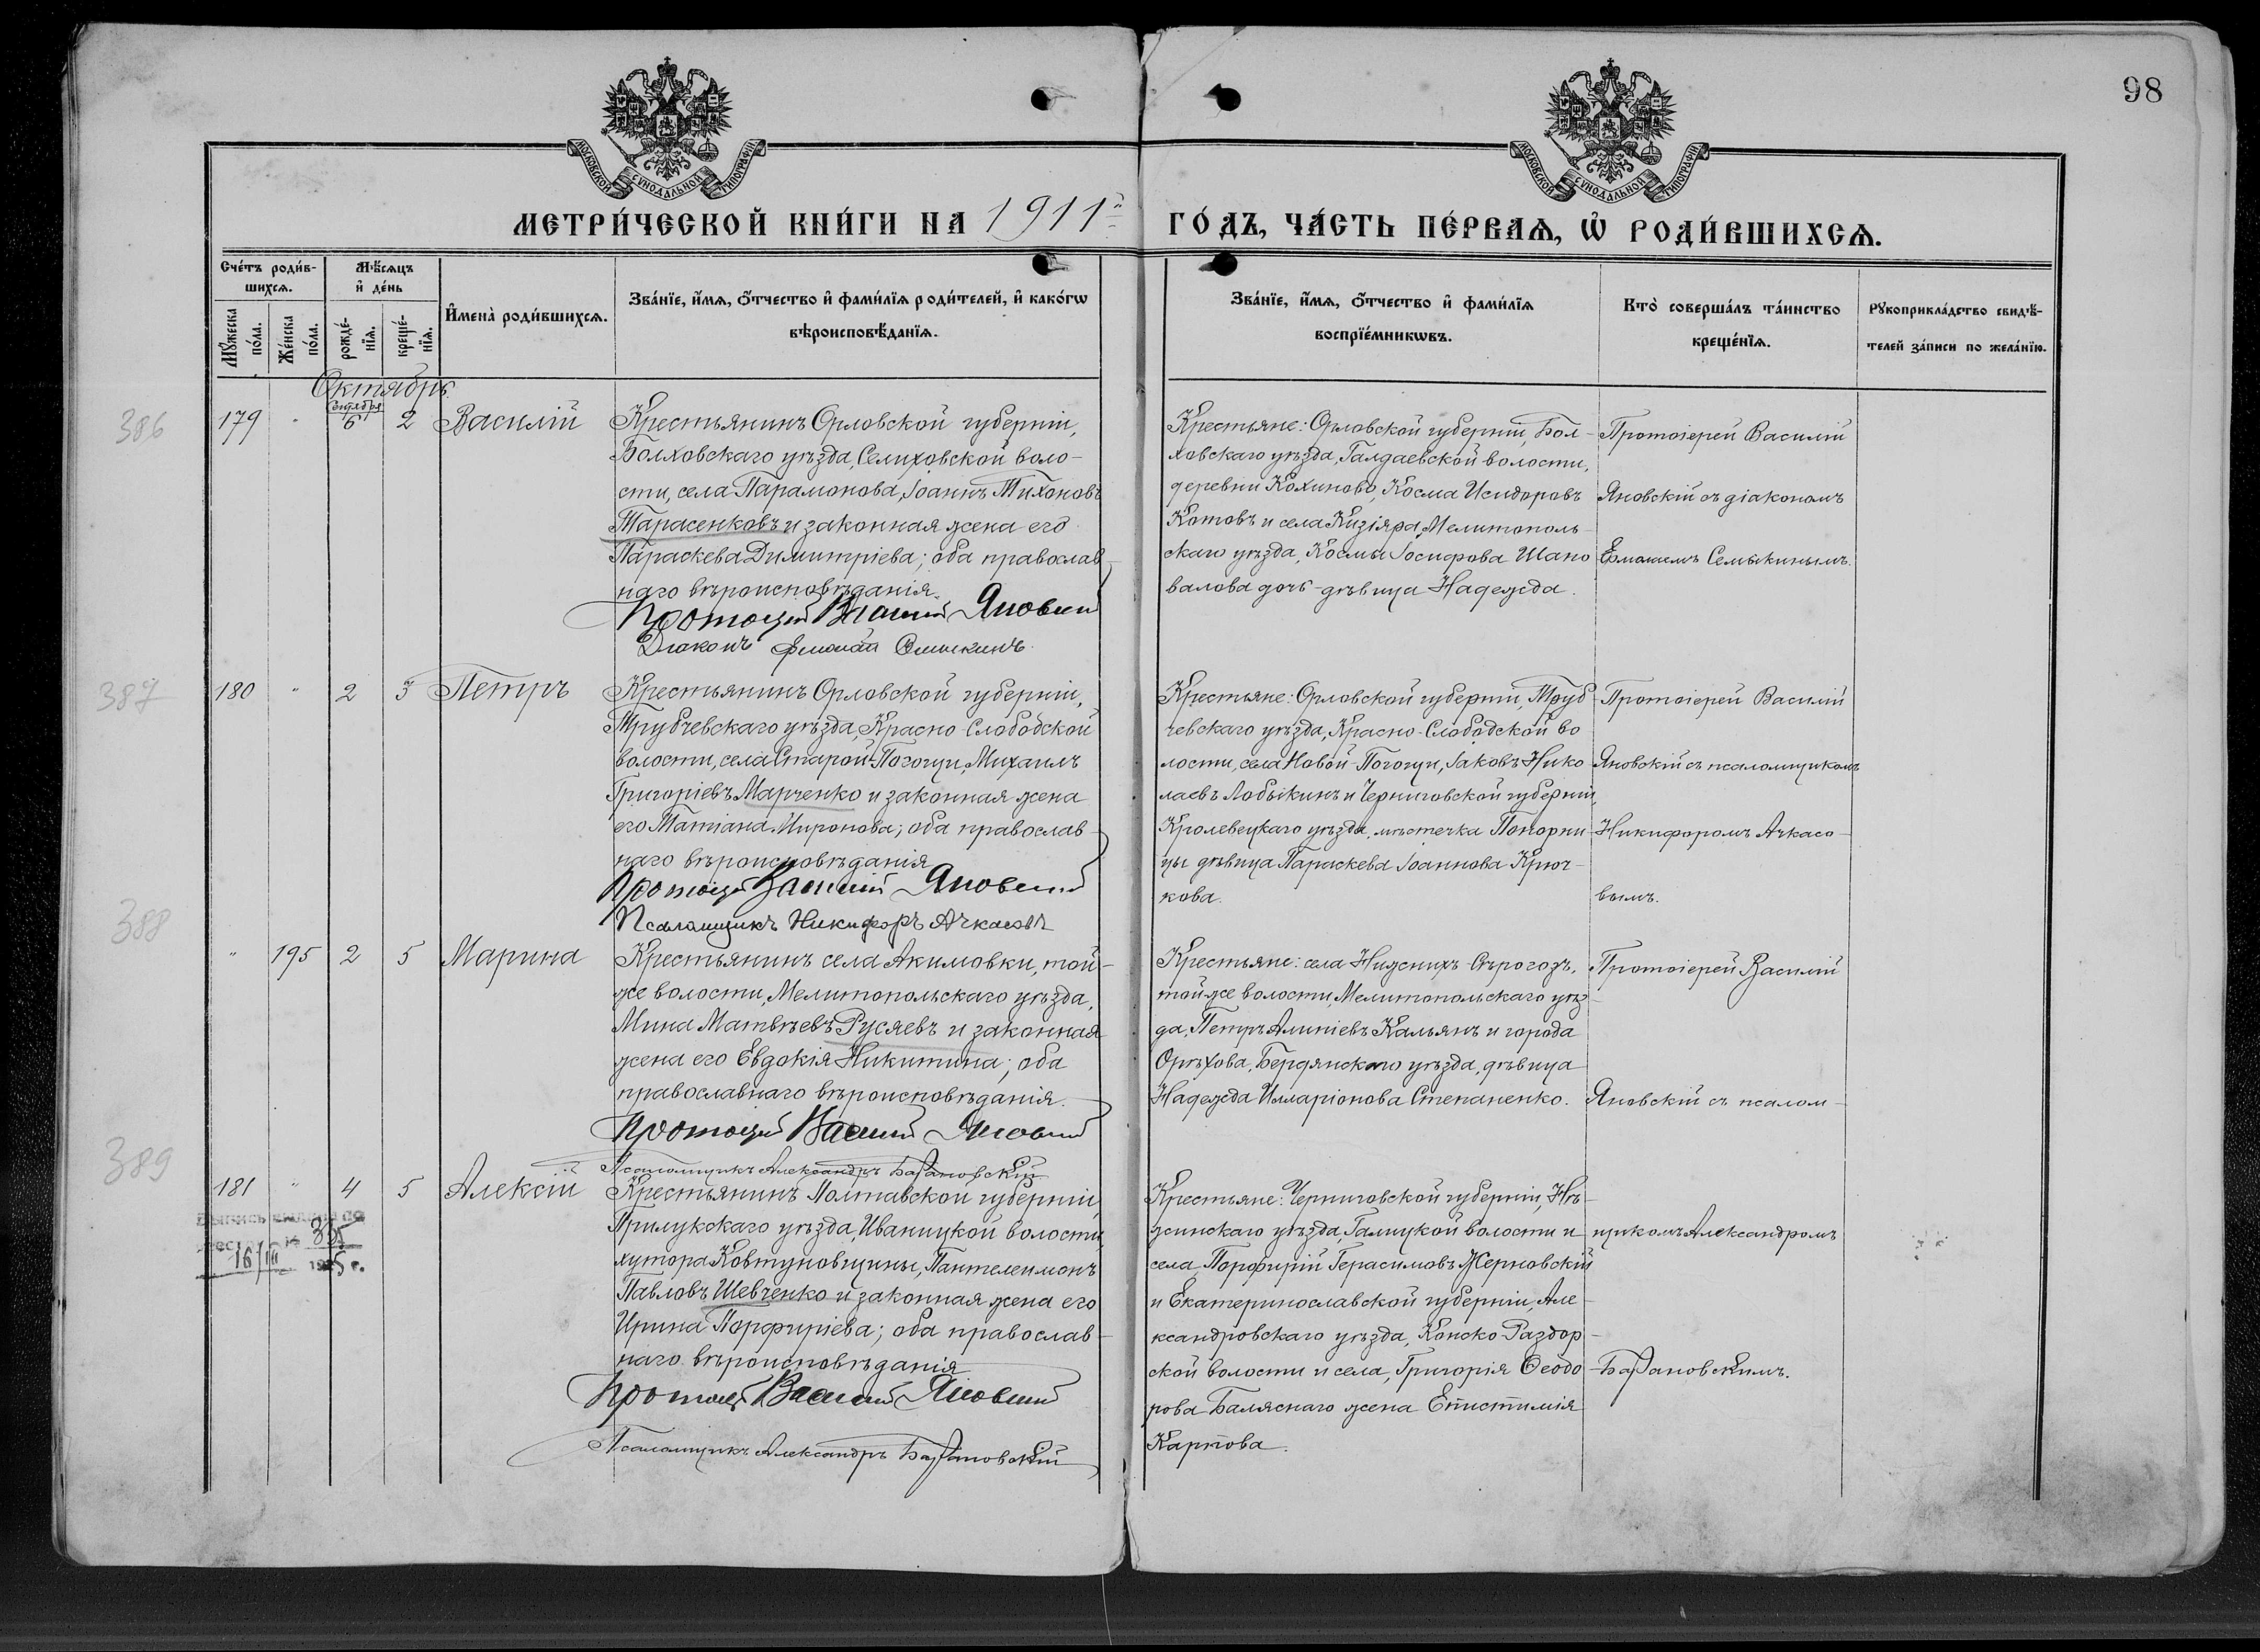 98
МОСКОВСКОЙ СѴНОДАЛЬНОЙ ТИПОГРАФІИ
МОСКОВСКОЙ СѴНОДАЛЬНОЙ ТИПОГРАФІИ
МЕТРИ́ЧЕСКОЙ КНИ́ГИ НА 1911й ГО́ДЪ, ЧА́СТЬ ПЕ́РВАѦ, Ѡ҆ РОДИ́ВШИХСѦ.
Сче́тъ роди́в-
шихсѧ.
Мꙋ́жеска
по́ла.
Же́нска
по́ла.
Мѣ́сѧцъ
и҆ де́нь
рожде́-
нїѧ.
креще́-
нїѧ.
И҆мена̀ роди́вшихсѧ.
Зва́нїе, и҆́мѧ, ѻ҆́тчество и҆ фами́лїѧ роди́телей, и҆ како́гѡ
вѣроисповѣ́данїѧ.
Зва́нїе, и҆́мѧ, ѻ҆́тчество и҆ фами́лїѧ
воспрїе́мникѡвъ.
Кто̀ соверша́лъ та́инство
креще́нїѧ.
Рꙋкоприкла́дство свидѣ́-
телей за́писи по жела́нїю.
Октябрь.
386
179 " Сентября 6 2 Василій
Крестьянинъ Орловской губерніи,
Болховскаго уѣзда, Селиховской воло-
сти, села Парамонова, Іоаннъ Тихоновъ
Тарасенковъ и законная жена его
Параскева Димитріева; оба православ-
наго вѣроисповѣданія.
Протоіерей Василій Яновскій
Діаконъ Ермолай Семыкинъ.
Крестьяне: Орловской губерніи, Бол-
ховскаго уѣзда, Галдаевской волости,
деревни Кохиново, Косма Исидоровъ
Котовъ и села Кизіяра, Мелитополь-
скаго уѣзда, Космы Іосифова Шапо
валова дочь-дѣвица Надежда.
Протоіерей Василій
Яновскій съ діакономъ
Ермолаемъ Семыкинымъ.
387
180 " 2 3 Петръ
Крестьянинъ Орловской губерніи,
Трубчевскаго уѣзда, Красно-Слободской
волости, села Старой-Погощи, Михаилъ
Григоріевъ Марченко и законная жена
его Татіана Миронова; оба православ-
наго вѣроисповѣданія
Протоіерей Василій Яновскій
Псаломщикъ Никифоръ Ачкасовъ
Крестьяне: Орловской губерніи, Труб
чевскаго уѣзда, Красно-Слободской во
лости, села Новой-Погощи, Іаковъ Нико
лаевъ Лобыкинъ и Черниговской губерніи,
Кролевецкаго уѣзда, мѣстечка Понорни
цы дѣвица Параскева Іоаннова Крюч-
кова.
Протоіерей Василій
Яновскій съ псаломщикомъ
Никифоромъ Ачкасо-
вымъ.
388
" 195 2 5 Марина
Крестьянинъ села Акимовки, той-
же волости, Мелитопольскаго уѣзда,
Мина Матвѣевъ Русяевъ и законная
жена его Евдокія Никитина; оба
православнаго вѣроисповѣданія.
Протоіерей Василій Яновскій
Псаломщикъ Александръ Барановскій
Крестьяне: села Нижнихъ-Сѣрогозъ,
тойже волости, Мелитопольскаго уѣз-
да, Петръ Алипіевъ Кальянъ и города
Орѣхова, Бердянскаго уѣзда, дѣвица
Надежда Илларіонова Степаненко.
Протоіерей Василій
Яновскій съ псалом-
389
181 " 4 5 Алексій
Выпись выдана
№ 335
16/III 1915 г.
Крестьянинъ Полтавской губерніи,
Прилукскаго уѣзда, Иваницкой волости,
хутора Ковтуновщины, Пантелеимонъ
Павловъ Шевченко и законная жена его
Ирина Порфиріева; оба православ-
наго вѣроисповѣданія
Протоіерей Василій Яновскій
Псаломщикъ Александръ Барановскій
Крестьяне: Черниговской губерніи, Нѣ-
жинскаго уѣзда, Галицкой волости и
села, Порфирій Герасимовъ Жерновскій
и Екатеринославской губерніи, Але-
ксандровскаго уѣзда, Конско-Раздор-
ской волости и села, Григорія Ѳеодо
рова Баляснаго жена Епистимія
Карпова.
щикомъ Александромъ
Барановскимъ.